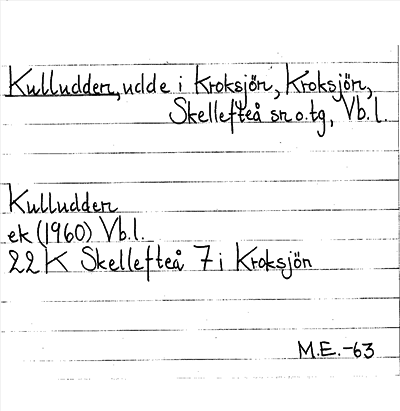 Kulludden, udde i Kroksjön, Kroksjön,
Skellefteå sn o. tg, Vb. l.
Kulludden
ek (1960) Vb.l.
22 K Skellefteå 7 i Kroksjön
M.E. -63